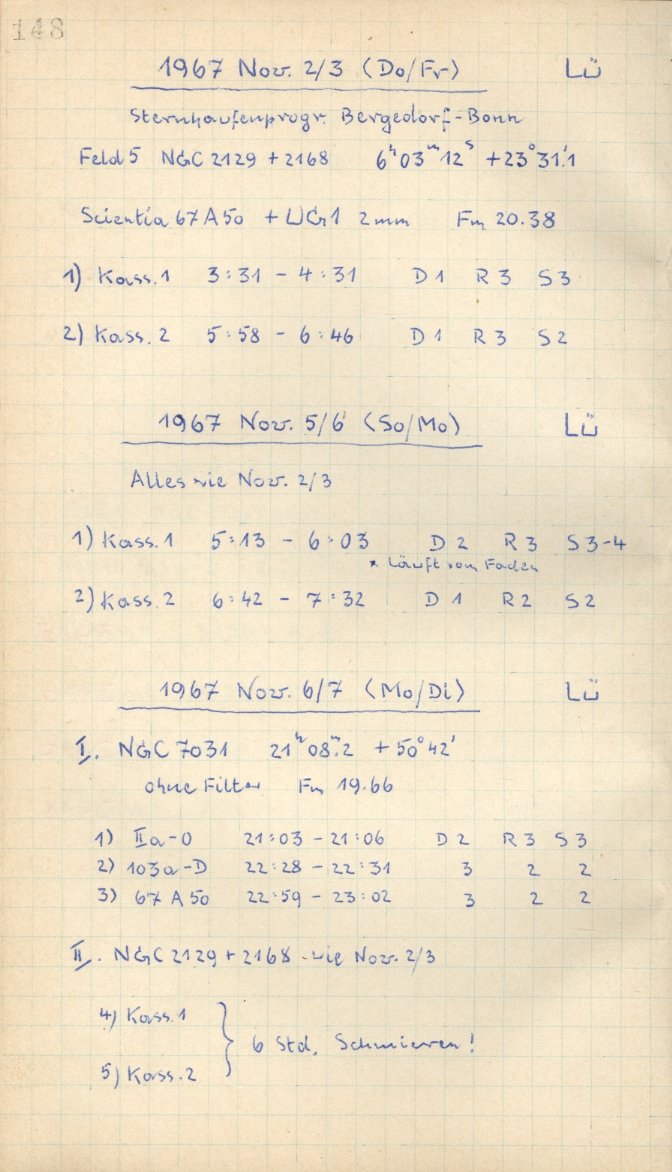 148
1967 Nov. 2/3 (Do/Fr) LÜ
Sternhaufenprogr. Bergedorf-Bonn
Feld 5 NGC 2129 + 2168 6ʰ03ᵐ12ˢ +23°31'.1
Scientia 67A50 + UG1 2mm Fm 20.38
1) Kass. 1 3:31 - 4:31 D1 R3 S3
2) Kass. 2 5:58 - 6:46 D1 R3 S2
1967 Nov. 5/6 (So/Mo) LÜ
Alles wie Nov. 2/3
1) Kass. 1 5:13 - 6:03 D2 R3 S3-4
* läuft vom Faden
2) Kass. 2 6:42 - 7:32 D1 R2 S2
1967 Nov. 6/7 (Mo/Di) LÜ
I. NGC 7031 21ʰ08ᵐ.2 +50°42'
ohne Filter Fm 19.66
1) IIa-O 21:03 - 21:06 D2 R3 S3
2) 103a-D 22:28 - 22:31 3 2 2
3) 67A50 22:59 - 23:02 3 2 2
II. NGC 2129 + 2168 wie Nov. 2/3
4) Kass. 1
} 6 Std. Schmieren!
5) Kass. 2